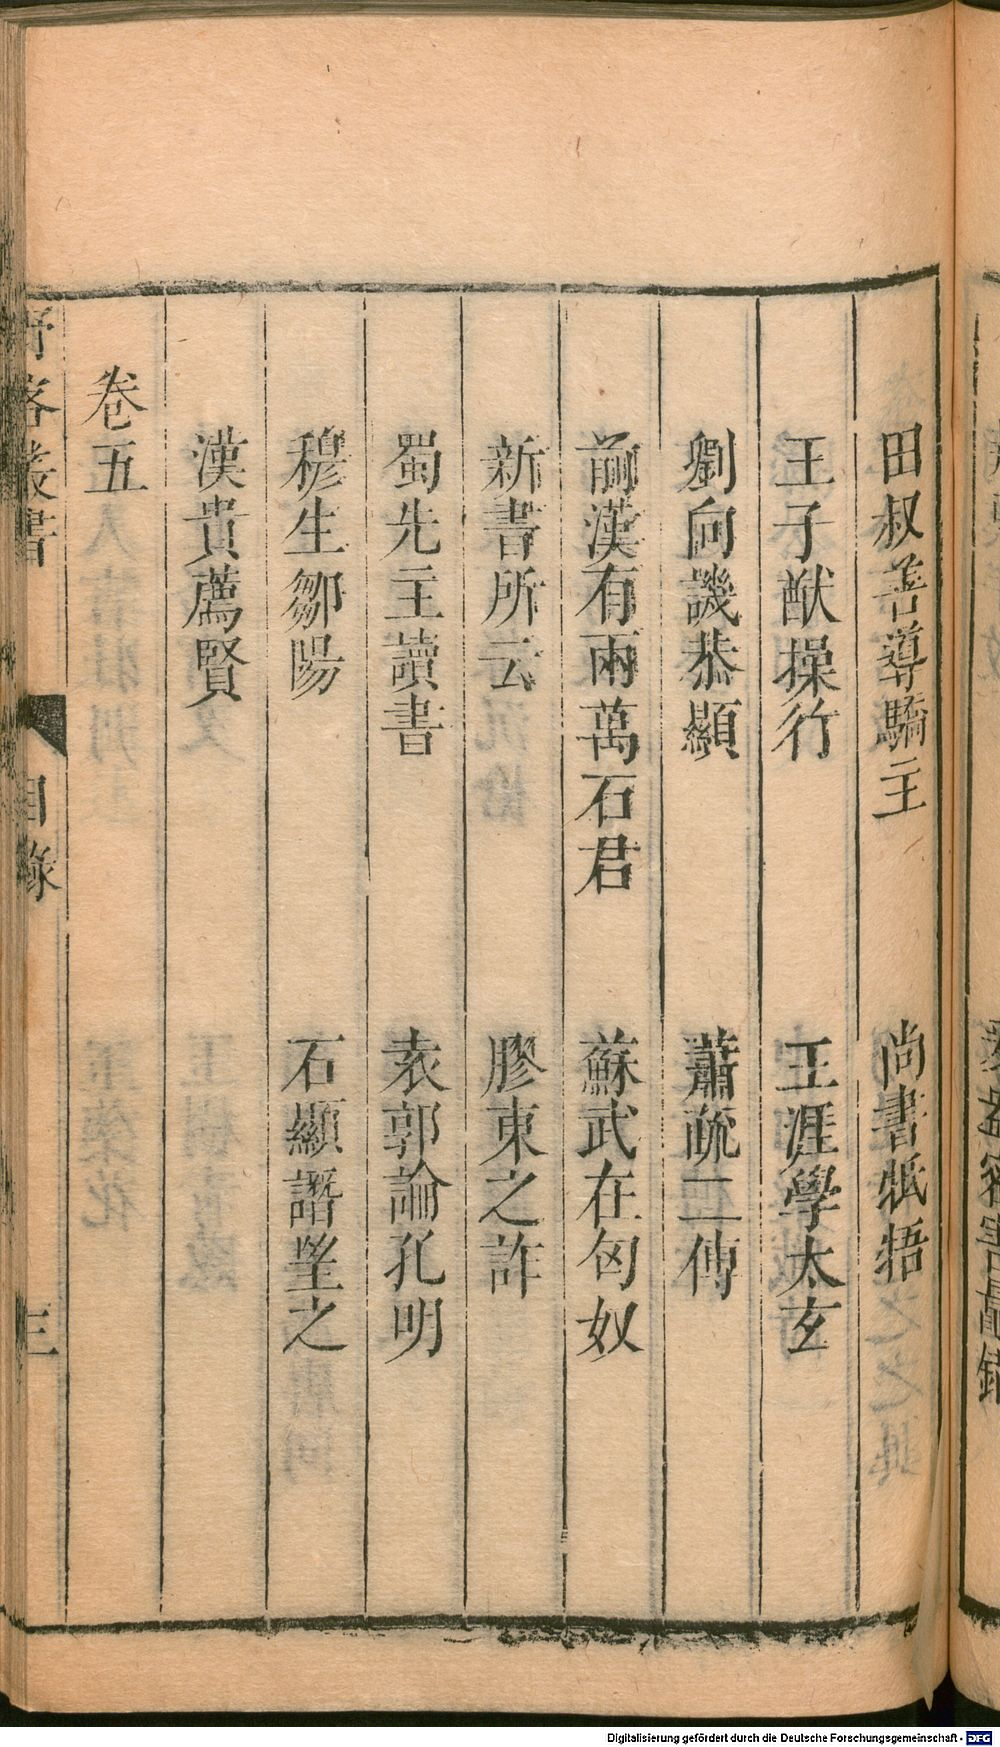 田叔善導驕主　尚書牴牾
王子猷操行　王涯學太玄
劉向譏恭顯　蕭疏二傳
前漢有兩萬石君　蘇武在匈奴
新書所云　膠東之詐
蜀先主讀書　袁郭論孔明
穆生鄒陽　石顯譖望之
漢貴薦賢
卷五
野客叢書　目錄　三
Digitalisierung gefördert durch die Deutsche Forschungsgemeinschaft - DFG